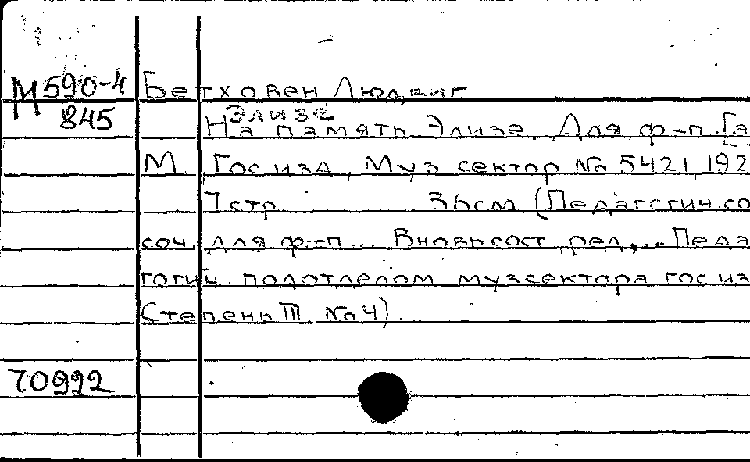 М 590-4 Бетховен Людвиг
845 Элизе
На память Элизе. Для ф-п. [а
М. Госизд., Муз сектор № 5421, 192
7 стр. 36см (Педагогич. со
соч для ф-п... Вновь сост, ред,... Педа
гогич. подотделом музсектора гос из
Степень III № 4).
70992